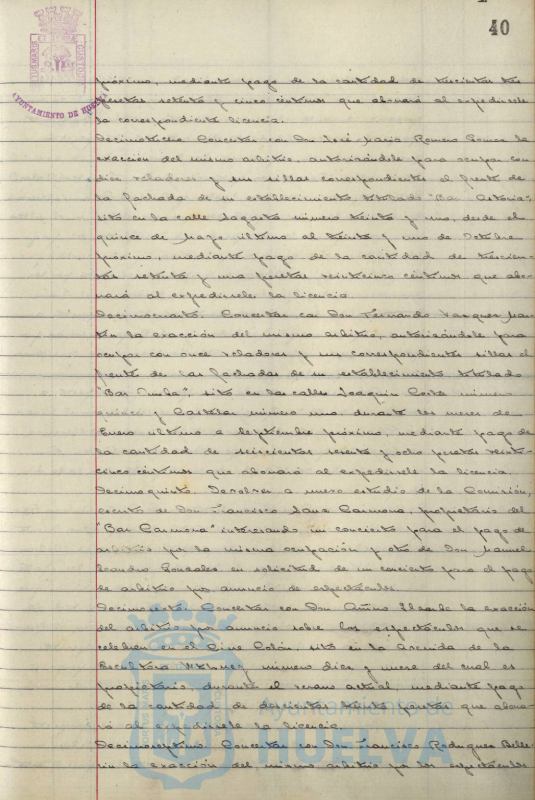 40
AYUNTAMIENTO DE HUELVA
próximo, mediante pago de la cantidad de trescientas tres
pesetas setenta y cinco céntimos que abonará al expedírsele
la correspondiente licencia.
Decimotercero. Concertar con Don José María Romero Gomez la
exacción del mismo arbitrio, autorizándole para ocupar con
diez veladores y sus sillas correspondientes el frente de
la fachada de su establecimiento titulado "Bar Astoria",
sito en la calle Sagasta número treinta y uno, desde el
quince de Mayo último al treinta y uno de Octubre
próximo, mediante pago de la cantidad de trescien-
tas setenta y una pesetas veinticinco céntimos que abo-
nará al expedírsele la licencia.
Decimocuarto. Concertar con Don Fernando Vazquez Mar-
tín la exacción del mismo arbitrio, autorizándole para
ocupar con once veladores y sus correspondientes sillas el
frente de las fachadas de su establecimiento titulado
sito en las calles Joaquín Costa número
quince y Castelar número uno, durante los meses de
Enero último a Septiembre próximo, mediante pago de
la cantidad de seiscientas sesenta y ocho pesetas veinti-
cinco céntimos que abonará al expedírsele la licencia.
Decimoquinto. Devolver a nuevo estudio de la Comisión,
escrito de Don Francisco Carmona, propietario del
"Bar Carmona" interesando un concierto para el pago de
arbitrio por la misma ocupación y otro de Don Manuel
Leandro Gonzales en solicitud de un concierto para el pago
de arbitrio por anuncio de espectáculos.
Decimosexto. Concertar con Don la exacción
del arbitrio por anuncio sobre los espectáculos que se
celebren en el Cine Colón, sito en la Avenida de la
Escultora número diez y nueve del cual es
propietario, durante el verano actual, mediante pago
de la cantidad de doscientas treinta pesetas que abona-
rá al expedírsele la licencia.
Decimoséptimo. Concertar con Don Francisco Rodriguez Belle-
rin la exacción del mismo arbitrio por los espectáculos
Ayuntamiento de
HUELVA